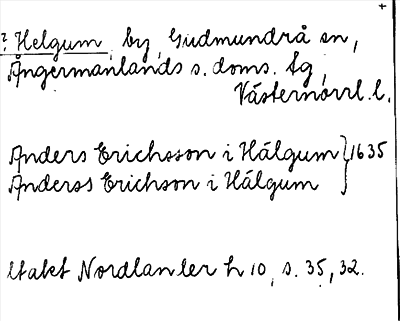 ? Helgum, by, Gudmundrå sn,
Ångermanlands s. doms. tg,
Västernorrl. l.
Anders Erichsson i Hälgum } 1635
Anderss Erichson i Hälgum
Utakt Nordlanler h 10, s. 35, 32.